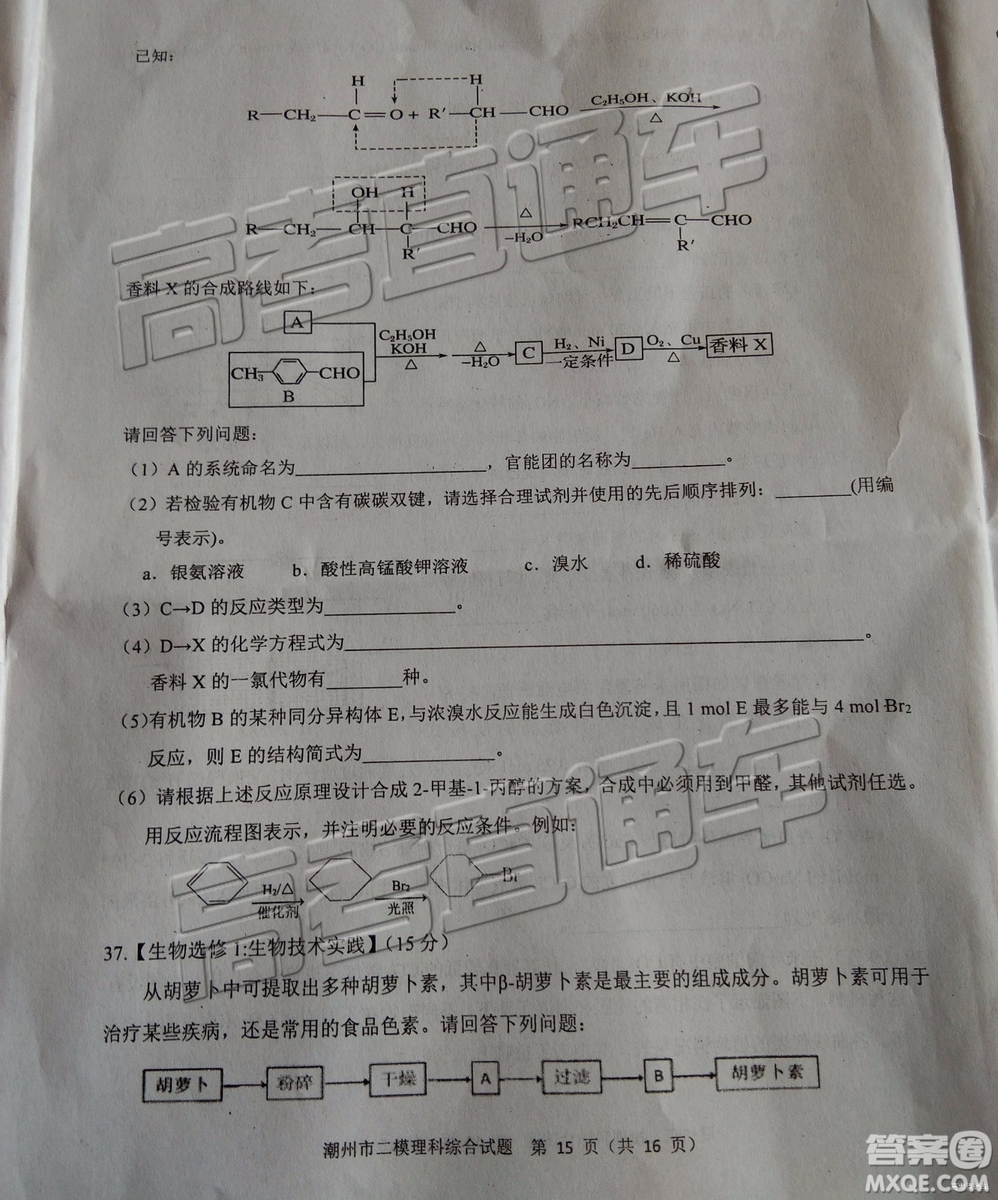 已知：
H H
R—CH₂—C═O + R′—CH—CHO C₂H₅OH、KOH △
OH H
R—CH₂—CH—C—CHO △ −H₂O RCH₂CH═C—CHO
R′ R′
香料 X 的合成路线如下：
A
C₂H₅OH KOH △ △ −H₂O C H₂、Ni 一定条件 D O₂、Cu △ 香料 X
CH₃ CHO
B
请回答下列问题：
（1）A 的系统命名为________，官能团的名称为________。
（2）若检验有机物 C 中含有碳碳双键，请选择合理试剂并使用的先后顺序排列：________(用编
号表示)。
a．银氨溶液 b．酸性高锰酸钾溶液 c．溴水 d．稀硫酸
（3）C→D 的反应类型为________。
（4）D→X 的化学方程式为________。
香料 X 的一氯代物有________种。
（5）有机物 B 的某种同分异构体 E，与浓溴水反应能生成白色沉淀，且 1 mol E 最多能与 4 mol Br₂
反应，则 E 的结构简式为________。
（6）请根据上述反应原理设计合成 2-甲基-1-丙醇的方案，合成中必须用到甲醛，其他试剂任选。
用反应流程图表示，并注明必要的反应条件。例如：
H₂/△ 催化剂 Br₂ 光照 Br
37.【生物选修 1:生物技术实践】（15 分）
从胡萝卜中可提取出多种胡萝卜素，其中β-胡萝卜素是最主要的组成成分。胡萝卜素可用于
治疗某些疾病，还是常用的食品色素。请回答下列问题：
胡萝卜 粉碎 干燥 A 过滤 B 胡萝卜素
潮州市二模理科综合试题 第 15 页（共 16 页）
高考直通车
高考直通车
答案圈
MXQE.COM